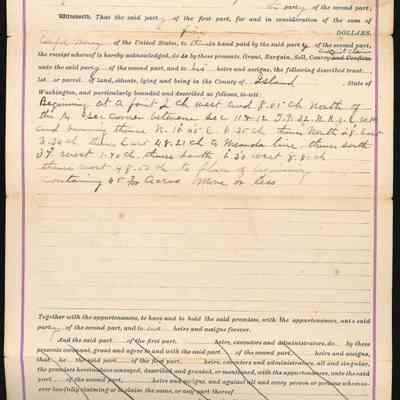 party of the second part;
Witnesseth, That the said party of the first part, for and in consideration of the sum of
DOLLARS,
lawful money of the United States, to in hand paid by the said party of the second part,
the receipt whereof is hereby acknowledged, do by these presents, Grant, Bargain, Sell, Convey and Confirm
unto the said party of the second part, and to his heirs and assigns, the following described tract
lot or parcel of land, situate, lying and being in the County of Island, State of
Washington, and particularly bounded and described as follows, to-wit:
Beginning at a point 2 ch west and 8.01 ch North of
the ¼ sec corner between sec 11 & 12 T.P 32. N.R.
and running thence N. 16 45' E. thence North
3.30 ch thence East 48.21 ch to Meander line, thence south
west 1.40 ch, thence south west 8.80 ch
thence west 48.50 ch to place of beginning
Containing Acres More or Less
Together with the appurtenances, to have and to hold the said premises, with the appurtenances, unto said
party of the second part, and to his heirs and assigns forever.
And the said part of the first part, heirs, executors and administrators, do by these
presents covenant, grant and agree to and with the said part of the second part, heirs and assigns,
that he the said part of the first part, heirs, executors and administrators, all and singular,
the premises hereinabove conveyed, described and granted, or mentioned, with the appurtenances, unto the said
part of the second part, heirs and assigns, and against all and every person or persons whomso-
ever lawfully claiming or to claim the same, or any part thereof